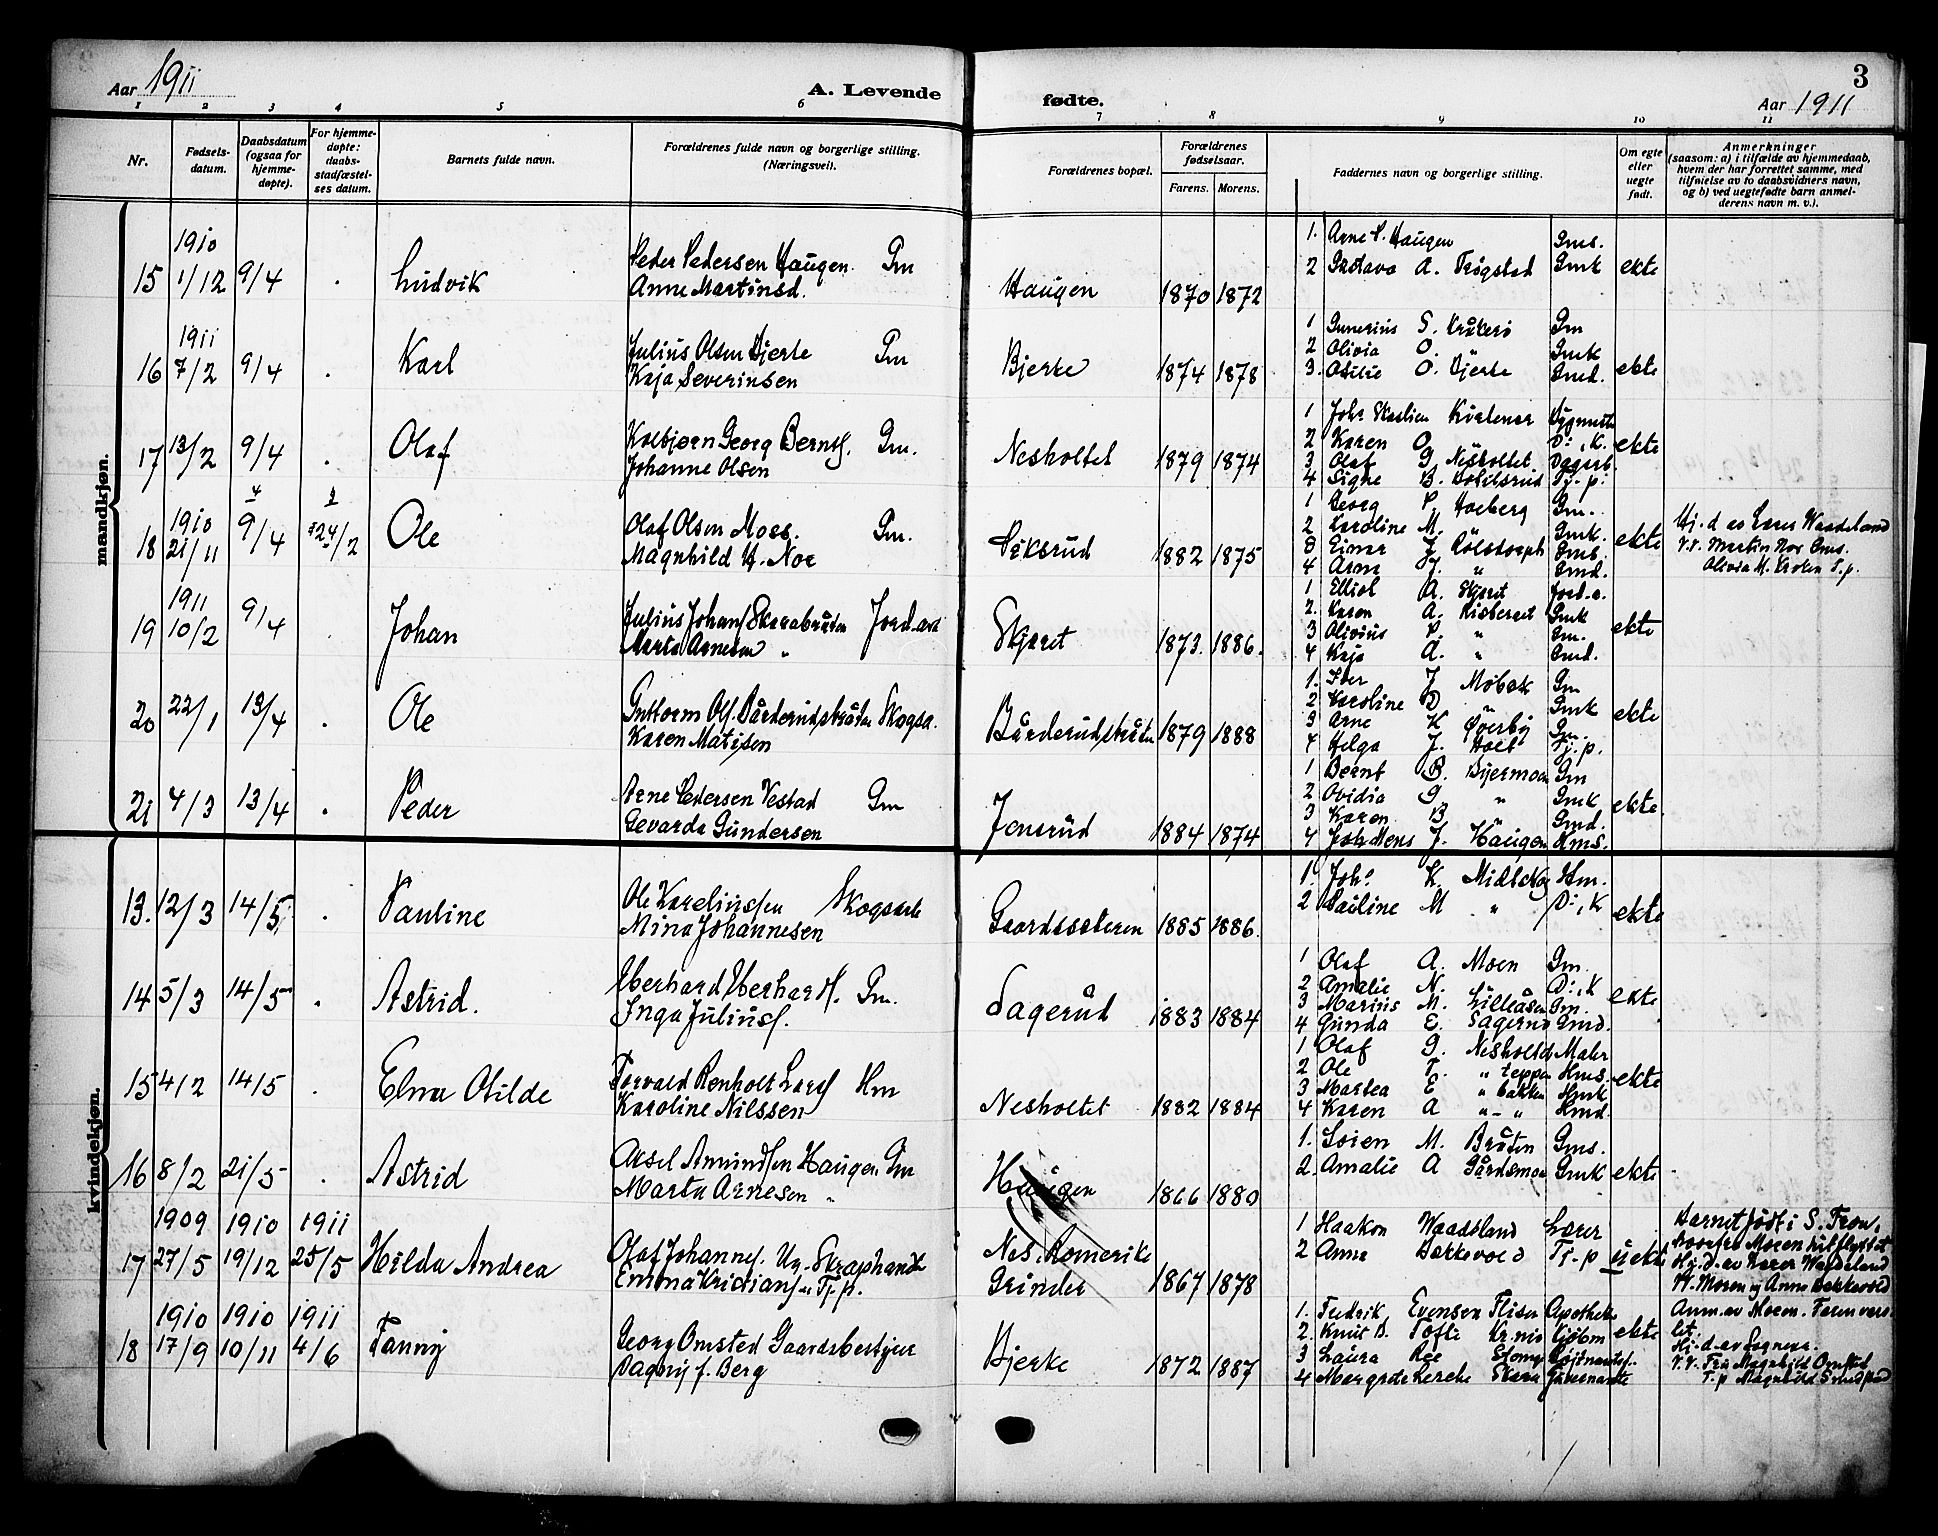 Aar 1911
A. Levende
fødte.
3
Aar 1911
1 2 3 4 5 6 7 8 9 10 11
Nr.
Fødsels-
datum.
Daabsdatum
(ogsaa for
hjemme-
døpte).
For hjemme-
døpte:
daabs-
stadfæstel-
ses datum.
Barnets fulde navn.
Forældrenes fulde navn og borgerlige stilling.
(Næringsvei).
Forældrenes bopæl.
Forældrenes
fødselsaar.
Farens. Morens.
Faddernes navn og borgerlige stilling.
Om egte
eller
uegte
født.
Anmerkninger
(saasom: a) i tilfælde av hjemmedaab,
hvem der har forrettet samme, med
tilføielse av to daabsvidners navn,
og b) ved uegtefødte barn anmel-
derens navn m. v.).
mandkjøn.
1910
15 1/12 9/4 . Ludvik
Peder Pedersen Haugen Gm
Anne Martinsd.
Haugen 1870 1872
1. Arne P. Haugen Gms.
2 Gustava A. Trøgstad Gmk
ekte
1911
16 7/2 9/4 . Karl
Julius Olsen Bjerke Gm
Kaja Severinsen
Bjerke 1874 1878
1 Gunerius S. Kråkerø Gm
2 Olivia O. Gmk
3. Otilie O. Bjerke Gmd.
ekte
17 13/2 9/4 . Olaf
Kolbjørn Georg Bernts. Gm.
Johanne Olsen
Nesholtet 1879 1874
1 Johs Skarlien Kvelener
2 Karen O. D:, K.
3 Olaf G Nesholtet
4 Signe B. Tj. p.
ekte
1910
18 21/11 9/4 24/2 Ole
Olaf Olsen Moss. Gm.
Magnhild H. Noe
Siksrud 1882 1875
1 Georg P. Hoeberg Gm.
2 Karoline M. Gmk.
3 Einar J. Rolstorph Gms.
4 Arne J. " Gmd.
ekte
Hj.d av Lærer Waadeland
V.V. Martin Noe Gms.
Olivia M. Kroken T.p.
1911
19 10/2 9/4 . Johan
Julius Johans. Skarabråten Jord.arb
Marta Arnesen "
Skjæret 1873. 1886.
1 Elliot A. Skjæret Jord.a.
2. Karen A. Risberget Gmk
3 Olivius P. " Gm.
4 Kaja A. " Gmd.
ekte
20 22/1 13/4 . Ole
Guttorm Ols. Bårderudstråten Skogsa.
Karen Matisen
Bårderudstråten 1879 1888
1. Iver J Møbæk Gm
2 Karoline D " Gmk
3 Arne K Øverby Gm.
4 Helga J. Holt Tj. p.
ekte
21 4/3 13/4 . Peder
Arne Pedersen Vestad Gm
Gevarda Gundersen
Jonsrud 1884 1874
1 Bernt B. Bjermoen Gm
2 Ovidia G " Gmk
3 Karen B " Gmd.
4 J. Haugen Hms.
ekte.
kvindekjøn.
13. 12/3 14/5 . Pauline
Ole Karelinussen Skogsarb
Mina Johannesen
Gaardssæteren 1885 1886.
1. Johs K. Midtskog Hm.
2 Pauline M " D:, K
ekte
14 5/3 14/5 . Astrid.
Eberhard Eberhards. Gm.
Inga Julius.
Sagerud 1883 1884
1 Olaf A. Moen Gm.
2 Amalie N. D:, K
3 Marius M. Lilleåsen Gm.
4 Gunda E. Sagerud Gmd.
ekte
15 4/2 14/5 . Elna Otilde
Torvald Renholt Lars. Hm
Karoline Nilssen
Nesholtet 1882 1884
1 Olaf G. Nesholtet Maler
2 Ole T. " teppen Hms.
3 Martea E " bakken Hmk
4 Karen A " - " Hmd.
ekte
16 8/2 21/5 . Astrid
Aksel Amundsen Haugen Gm
Marta Arnesen "
Haugen 1866 1880
1. Soien M. Bråten Gms.
2. Amalie A Gårdsmoen Gmk
ekte
1909 1910 1911
17 27/5 19/12 25/5 Hilda Andrea
Olaf Johannes. Ug. Skraphandl
Emma Kristians. Tj. p.
Nes. Romerike
Grinder 1867 1878
1 Haakon Waadeland Lærer
2 Anna Bakkevold Tj.p
uekte
Barnet født i S. Tron.
Moren hitflyttet
Hj.d. av Lærer Waadeland
V. Moren og Anna Bakkevold
Anm. av Moren.
1910 1910 1911
18 17/9 10/11 4/6 Fanny
Georg Omsted Gaardsbestyrer
Dagny f. Berg
Bjerke 1872 1887
1. Fredrik Evensen Flisen Apotheker
2. Knut B. Tofte Kjøbm
3 Laura Ree
4 Margrete Lerche Guvernante
ekte
Hj.d. av Sognepr.
V.V. Fru Magnhild Omsted
T.p Magnhild